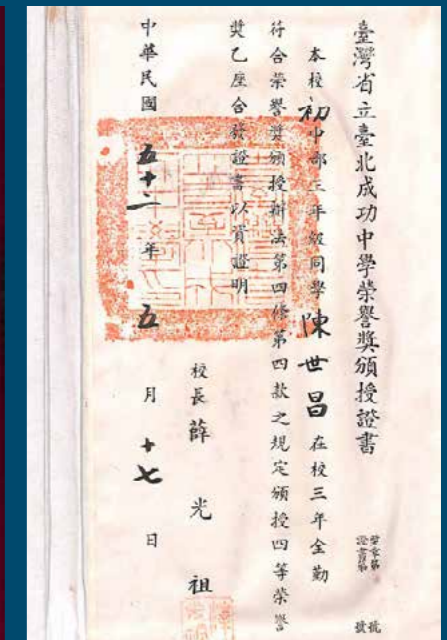 臺灣省立臺北成功中學榮譽獎頒授證書
榮章第 號
證書第 號
本校初中部三年級同學陳世昌在校三年全勤
符合榮譽獎頒授辦法第四條第四款之規定頒授四等榮譽
獎乙座合發證書以資證明
校長薛光祖
中華民國五十二年五月十七日